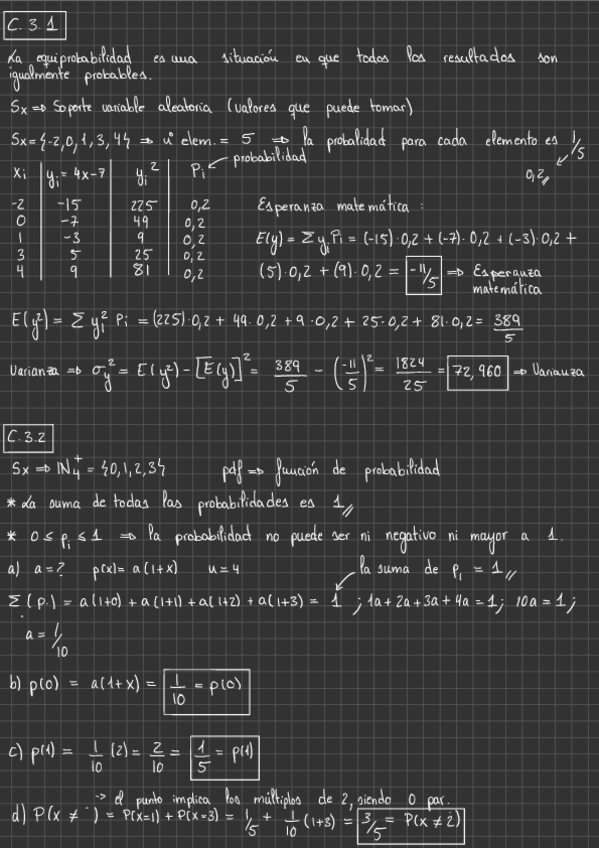 C.3.1
La equiprobabilidad es una situación en que todos los resultados son
igualmente probables.
Sx => Soporte variable aleatoria (valores que puede tomar)
Sx = {-2,0,1,3,4} => nº elem. = 5 => la probalidad para cada elemento es 1/5
probabilidad
0,2
xi | yi = 4x-7 | yi² | Pi
-2 | -15 | 225 | 0,2
0 | -7 | 49 | 0,2
1 | -3 | 9 | 0,2
3 | 5 | 25 | 0,2
4 | 9 | 81 | 0,2
Esperanza matemática :
E(y) = Σ yi Pi = (-15)·0,2 + (-7)·0,2 + (-3)·0,2 +
(5)·0,2 + (9)·0,2 = -11/5 => Esperanza
matemática
E(y²) = Σ yi² Pi = (225)·0,2 + 49·0,2 + 9·0,2 + 25·0,2 + 81·0,2 = 389/5
Varianza => σy² = E(y²) - [E(y)]² = 389/5 - (-11/5)² = 1824/25 = 72,960 => Varianza
C.3.2
Sx => IN4+ = {0,1,2,3} pdf => función de probabilidad
* La suma de todas las probabilidades es 1
* 0 ≤ pi ≤ 1 => la probabilidad no puede ser ni negativo ni mayor a 1.
a) a = ? p(x) = a(1+x) n = 4 la suma de pi = 1
Σ(pi) = a(1+0) + a(1+1) + a(1+2) + a(1+3) = 1 ; 1a + 2a + 3a + 4a = 1 ; 10a = 1 ;
a = 1/10
b) p(0) = a(1+x) = 1/10 = p(0)
c) p(1) = 1/10 (2) = 2/10 = 1/5 = p(1)
-> el punto implica los múltiplos de 2, siendo 0 par.
d) P(x ≠ ˙) = P(x=1) + P(x=3) = 1/5 + 1/10 (1+3) = 3/5 = P(x ≠ 2̇)